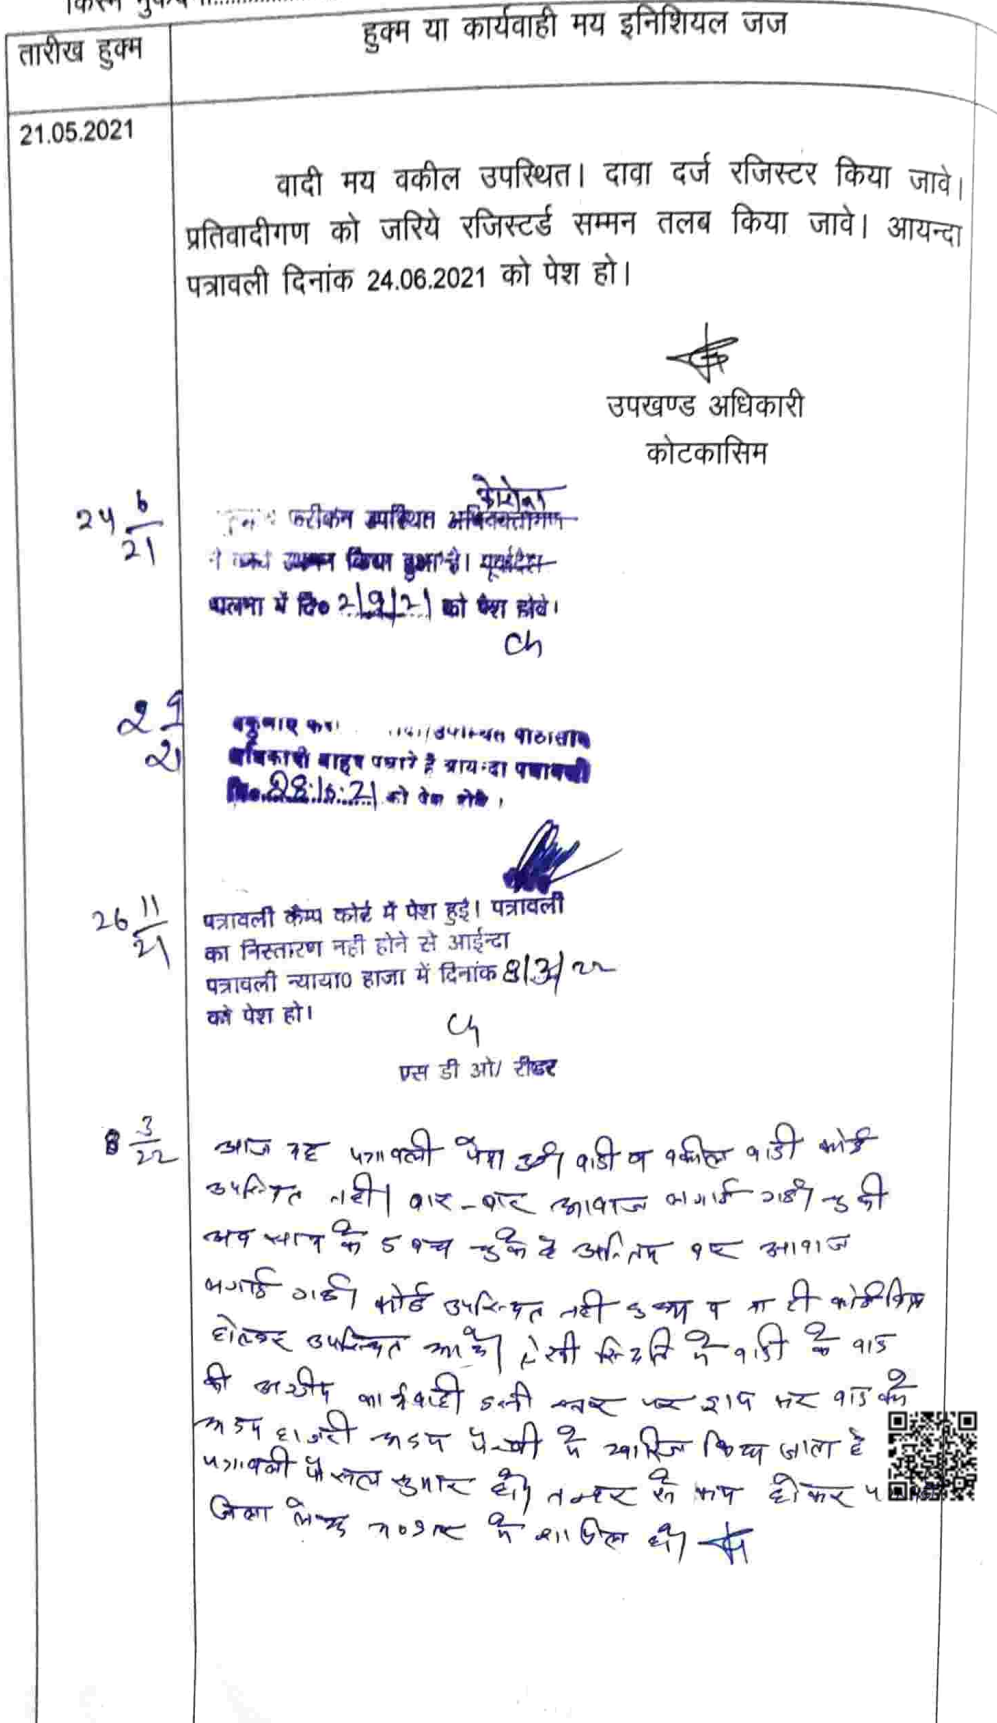 तारीख हुक्म
हुक्म या कार्यवाही मय इनिशियल जज
21.05.2021
वादी मय वकील उपस्थित। दावा दर्ज रजिस्टर किया जावे।
प्रतिवादीगण को जरिये रजिस्टर्ड सम्मन तलब किया जावे। आयन्दा
पत्रावली दिनांक 24.06.2021 को पेश हो।
उपखण्ड अधिकारी
कोटकासिम
24 6/21
फरीकन उपस्थित अभिवक्तागण
किया हुआ है। पूर्वादेश
पालना में दि० 2/9/21 को पेश होवे।
2 9/21
उपस्थित पीठासीन
अधिकारी बाहर पधारे है आयन्दा पत्रावली
को पेश होवे।
26 11/21
पत्रावली कैम्प कोर्ट में पेश हुई। पत्रावली
का निस्तारण नही होने से आईन्दा
पत्रावली न्याया0 हाजा में दिनांक 8/3/22
को पेश हो।
एस डी ओ/ रीडर
8 3/22
आज यह पत्रावली पेश हुई। वादी व वकील वादी कोई
उपस्थित नही। बार-बार आवाज लगाई गई।
अब शाम के 5 बज चुके है अन्तिम बार आवाज
लगाई गई। कोई उपस्थित नही हुआ व ना ही कोई
होकर उपस्थित आये। ऐसी स्थिति में वादी के वाद
की कार्यवाही इसी स्तर पर ड्राप कर वाद को
अदम हाजरी अदम पैरवी में खारिज किया जाता है
पत्रावली फैसल शुमार हो। नम्बर से कम होकर
में शामिल हो।